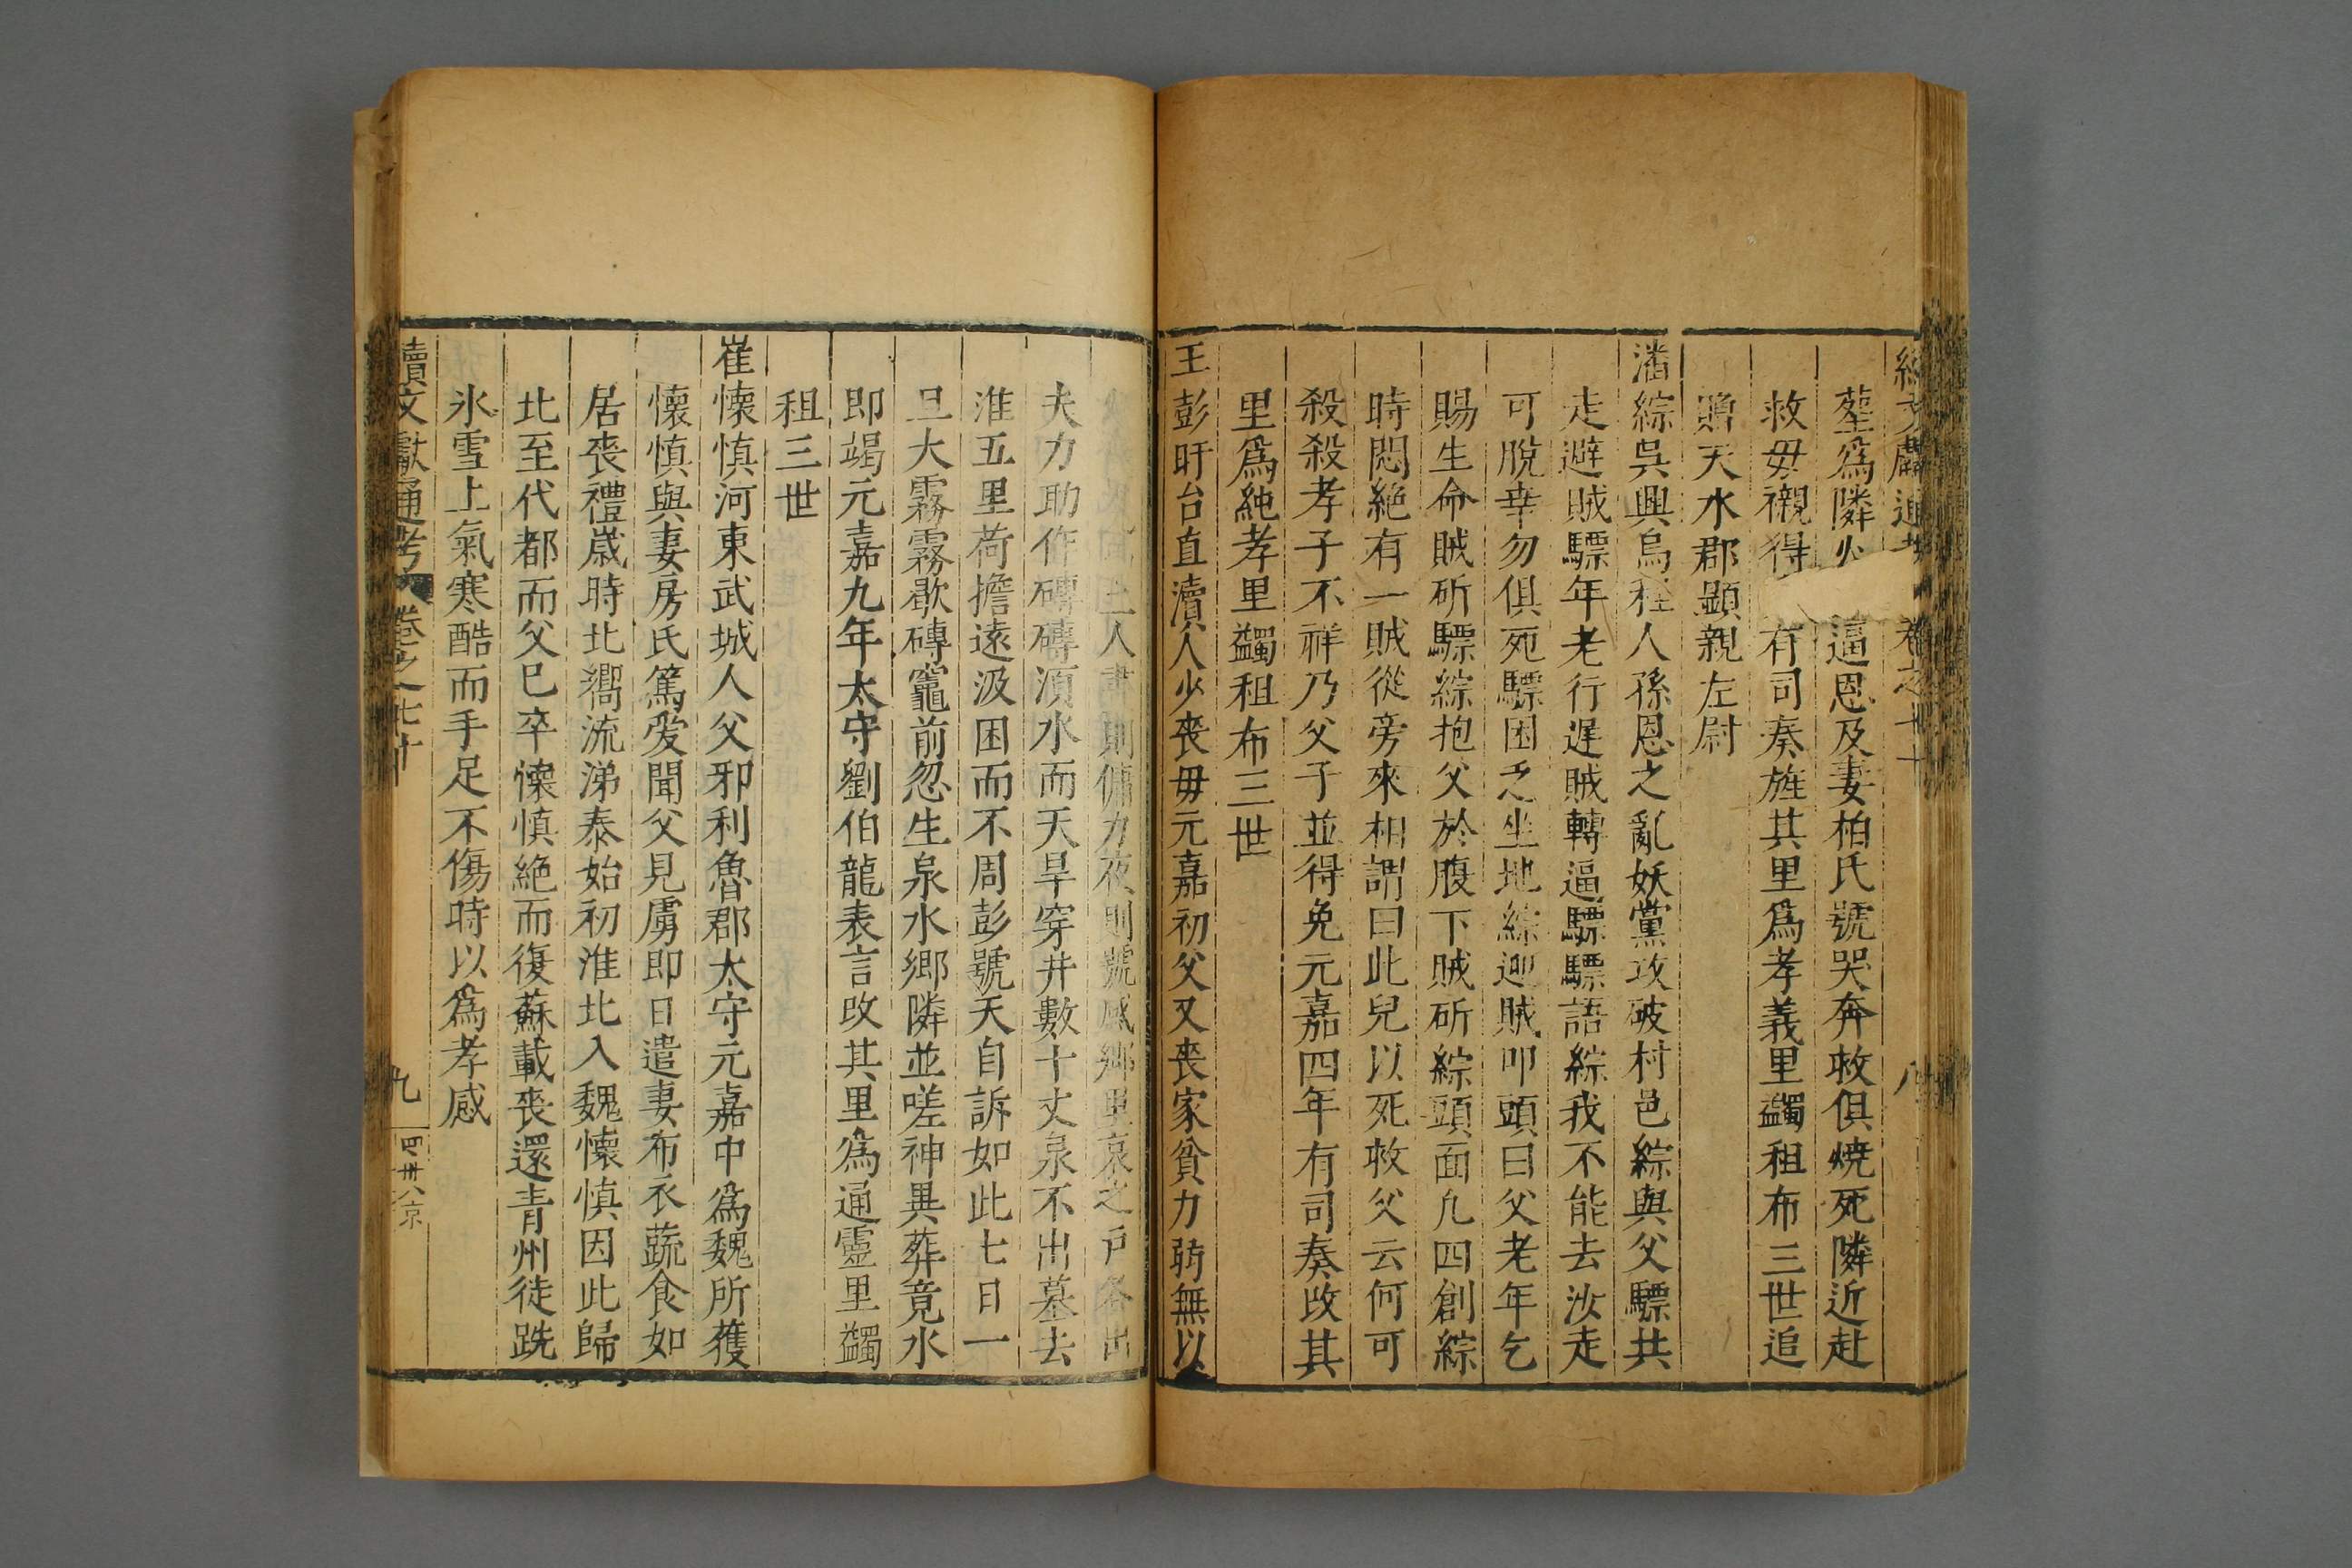 續文獻通考 卷之七十 八
塟爲隣火 逼恩及妻柏氏號哭奔救俱燒死隣近赴
救毋襯得 有司奏旌其里爲孝義里蠲租布三世追
贈天水郡顯親左尉
潘綜吳興烏程人孫恩之亂妖黨攻破村邑綜與父驃共
走避賊驃年老行遲賊轉逼驃驃語綜我不能去汝走
可脫幸勿俱死驃困乏坐地綜迎賊叩頭曰父老年乞
賜生命賊斫驃綜抱父於腹下賊斫綜頭面凢四創綜
時悶絶有一賊從旁來相謂曰此兒以死救父云何可
殺殺孝子不祥乃父子並得免元嘉四年有司奏改其
里爲純孝里蠲租布三世
王彭盱台直瀆人少喪毋元嘉初父又喪家貧力弱無以
人晝則傭力夜則號感鄉里哀之戶各出
夫力助作磚磚湏水而天旱穿井數十丈泉不出墓去
淮五里荷擔遠汲困而不周彭號天自訴如此七日一
旦大霧霧歇磚竈前忽生泉水鄉隣並嗟神異葬竟水
即竭元嘉九年太守劉伯龍表言改其里爲通靈里蠲
租三世
崔懷慎河東武城人父邪利魯郡太守元嘉中爲魏所獲
懷慎與妻房氏篤愛聞父見虜即日遣妻布衣蔬食如
居喪禮嵗時北嚮流涕泰始初淮北入魏懷慎因此歸
北至代都而父巳卒懷慎絶而復蘇載喪還青州徒跣
氷雪上氣寒酷而手足不傷時以爲孝感
續文獻通考 卷之七十 九 四卅八京